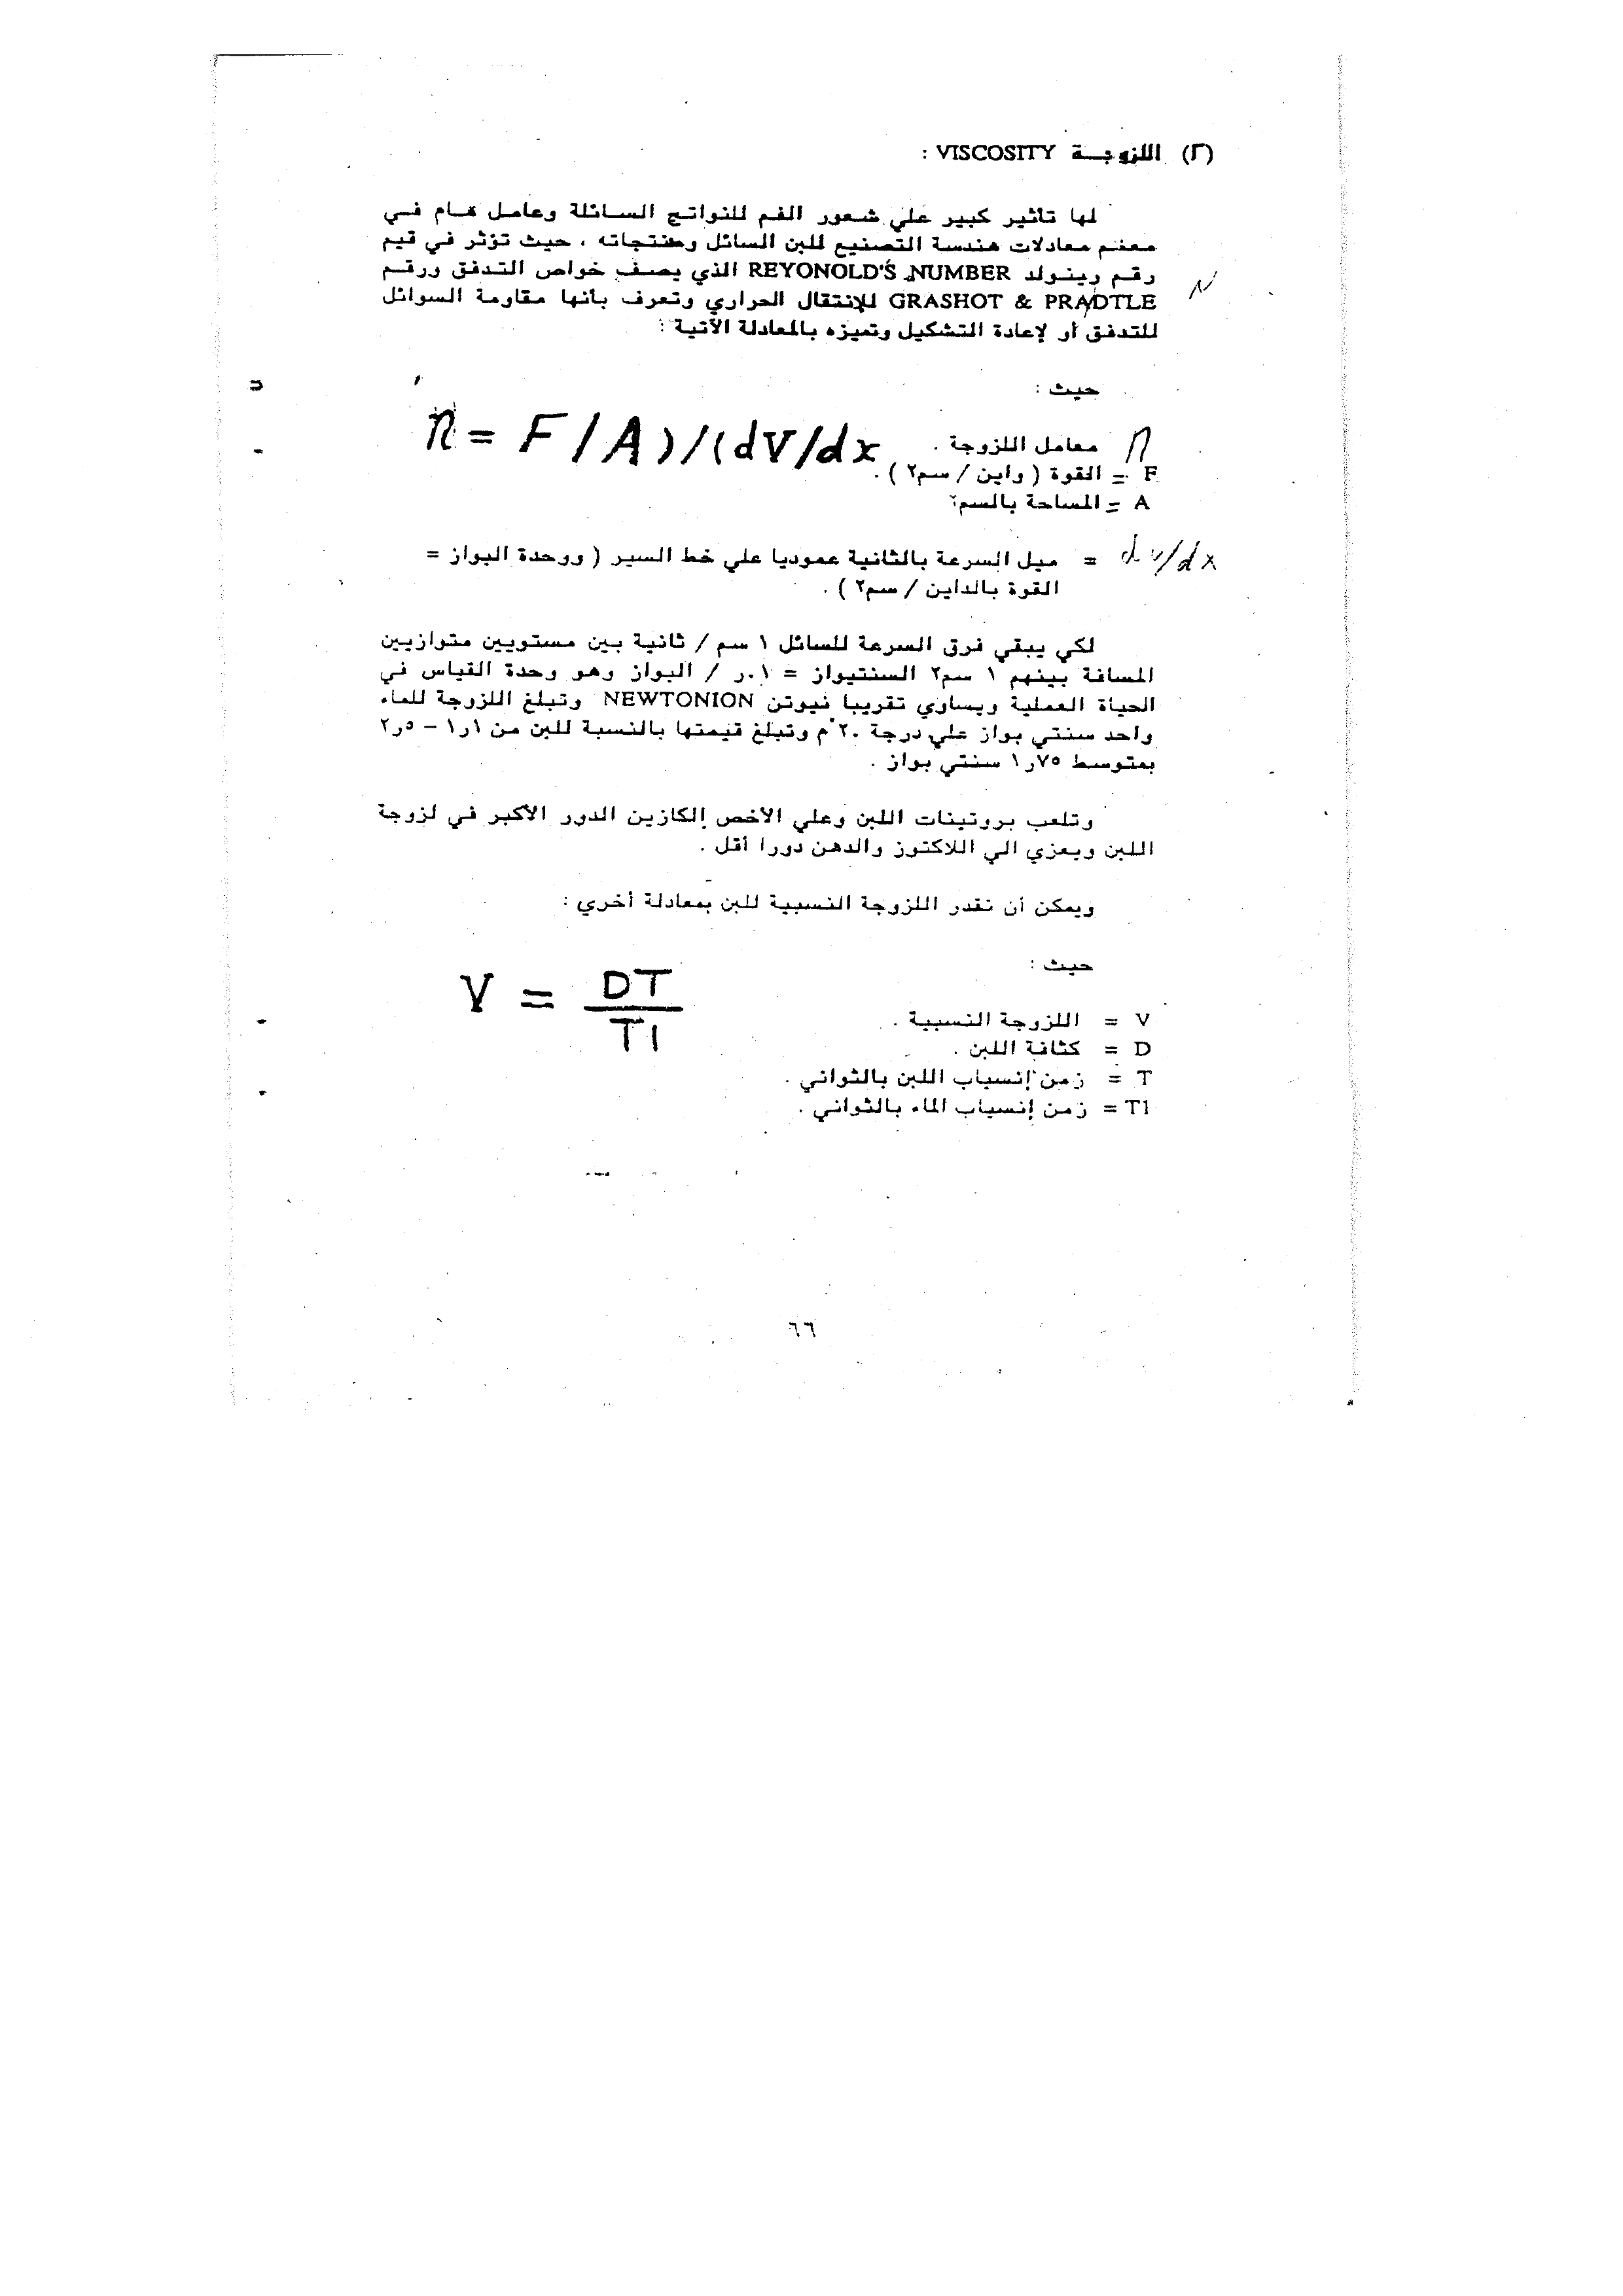 (٢) اللزوجة VISCOSITY :
لها تأثير كبير علي شعور الفم للنواتج السائلة وعامل هام في
معظم معادلات هندسة التصنيع للبن السائل ومنتجاته ، حيث تؤثر في قيم
رقم رينولد REYONOLD'S NUMBER الذي يصف خواص التدفق ورقم
GRASHOT & PRADTLE للإنتقال الحراري وتعرف بأنها مقاومة السوائل
N
للتدفق أو لإعادة التشكيل وتميزه بالمعادلة الآتية :
حيث :
n = F/A)/(dV/dx
n معامل اللزوجة .
F = القوة ( واين / سم٢ ) .
A = المساحة بالسم٢
dv/dx = ميل السرعة بالثانية عموديا علي خط السير ( ووحدة البواز =
القوة بالداين / سم٢ ) .
لكي يبقي فرق السرعة للسائل ١ سم / ثانية بين مستويين متوازيين
المسافة بينهم ١ سم٢ السنتيواز = ٠١ر / البواز وهو وحدة القياس في
الحياة العملية ويساوي تقريبا نيوتن NEWTONION وتبلغ اللزوجة للماء
واحد سنتي بواز علي درجة ٢٠°م وتبلغ قيمتها بالنسبة للبن من ١ر١ – ٥ر٢
بمتوسط ٧٥ر١ سنتي بواز .
وتلعب بروتينات اللبن وعلي الأخص الكازين الدور الأكبر في لزوجة
اللبن ويعزي الي اللاكتوز والدهن دورا أقل .
ويمكن أن نقدر اللزوجة النسبية للبن بمعادلة أخري :
حيث :
V = DT
T1
V = اللزوجة النسبية .
D = كثافة اللبن .
T = زمن إنسياب اللبن بالثواني .
T1 = زمن إنسياب الماء بالثواني .
٦٦